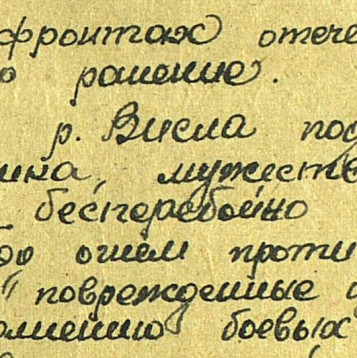 фронтах отече
о ранению.
р. Висла под
ина, мужеств
бесперебойно
до огнём проти
" поврежденные
олнению боевых